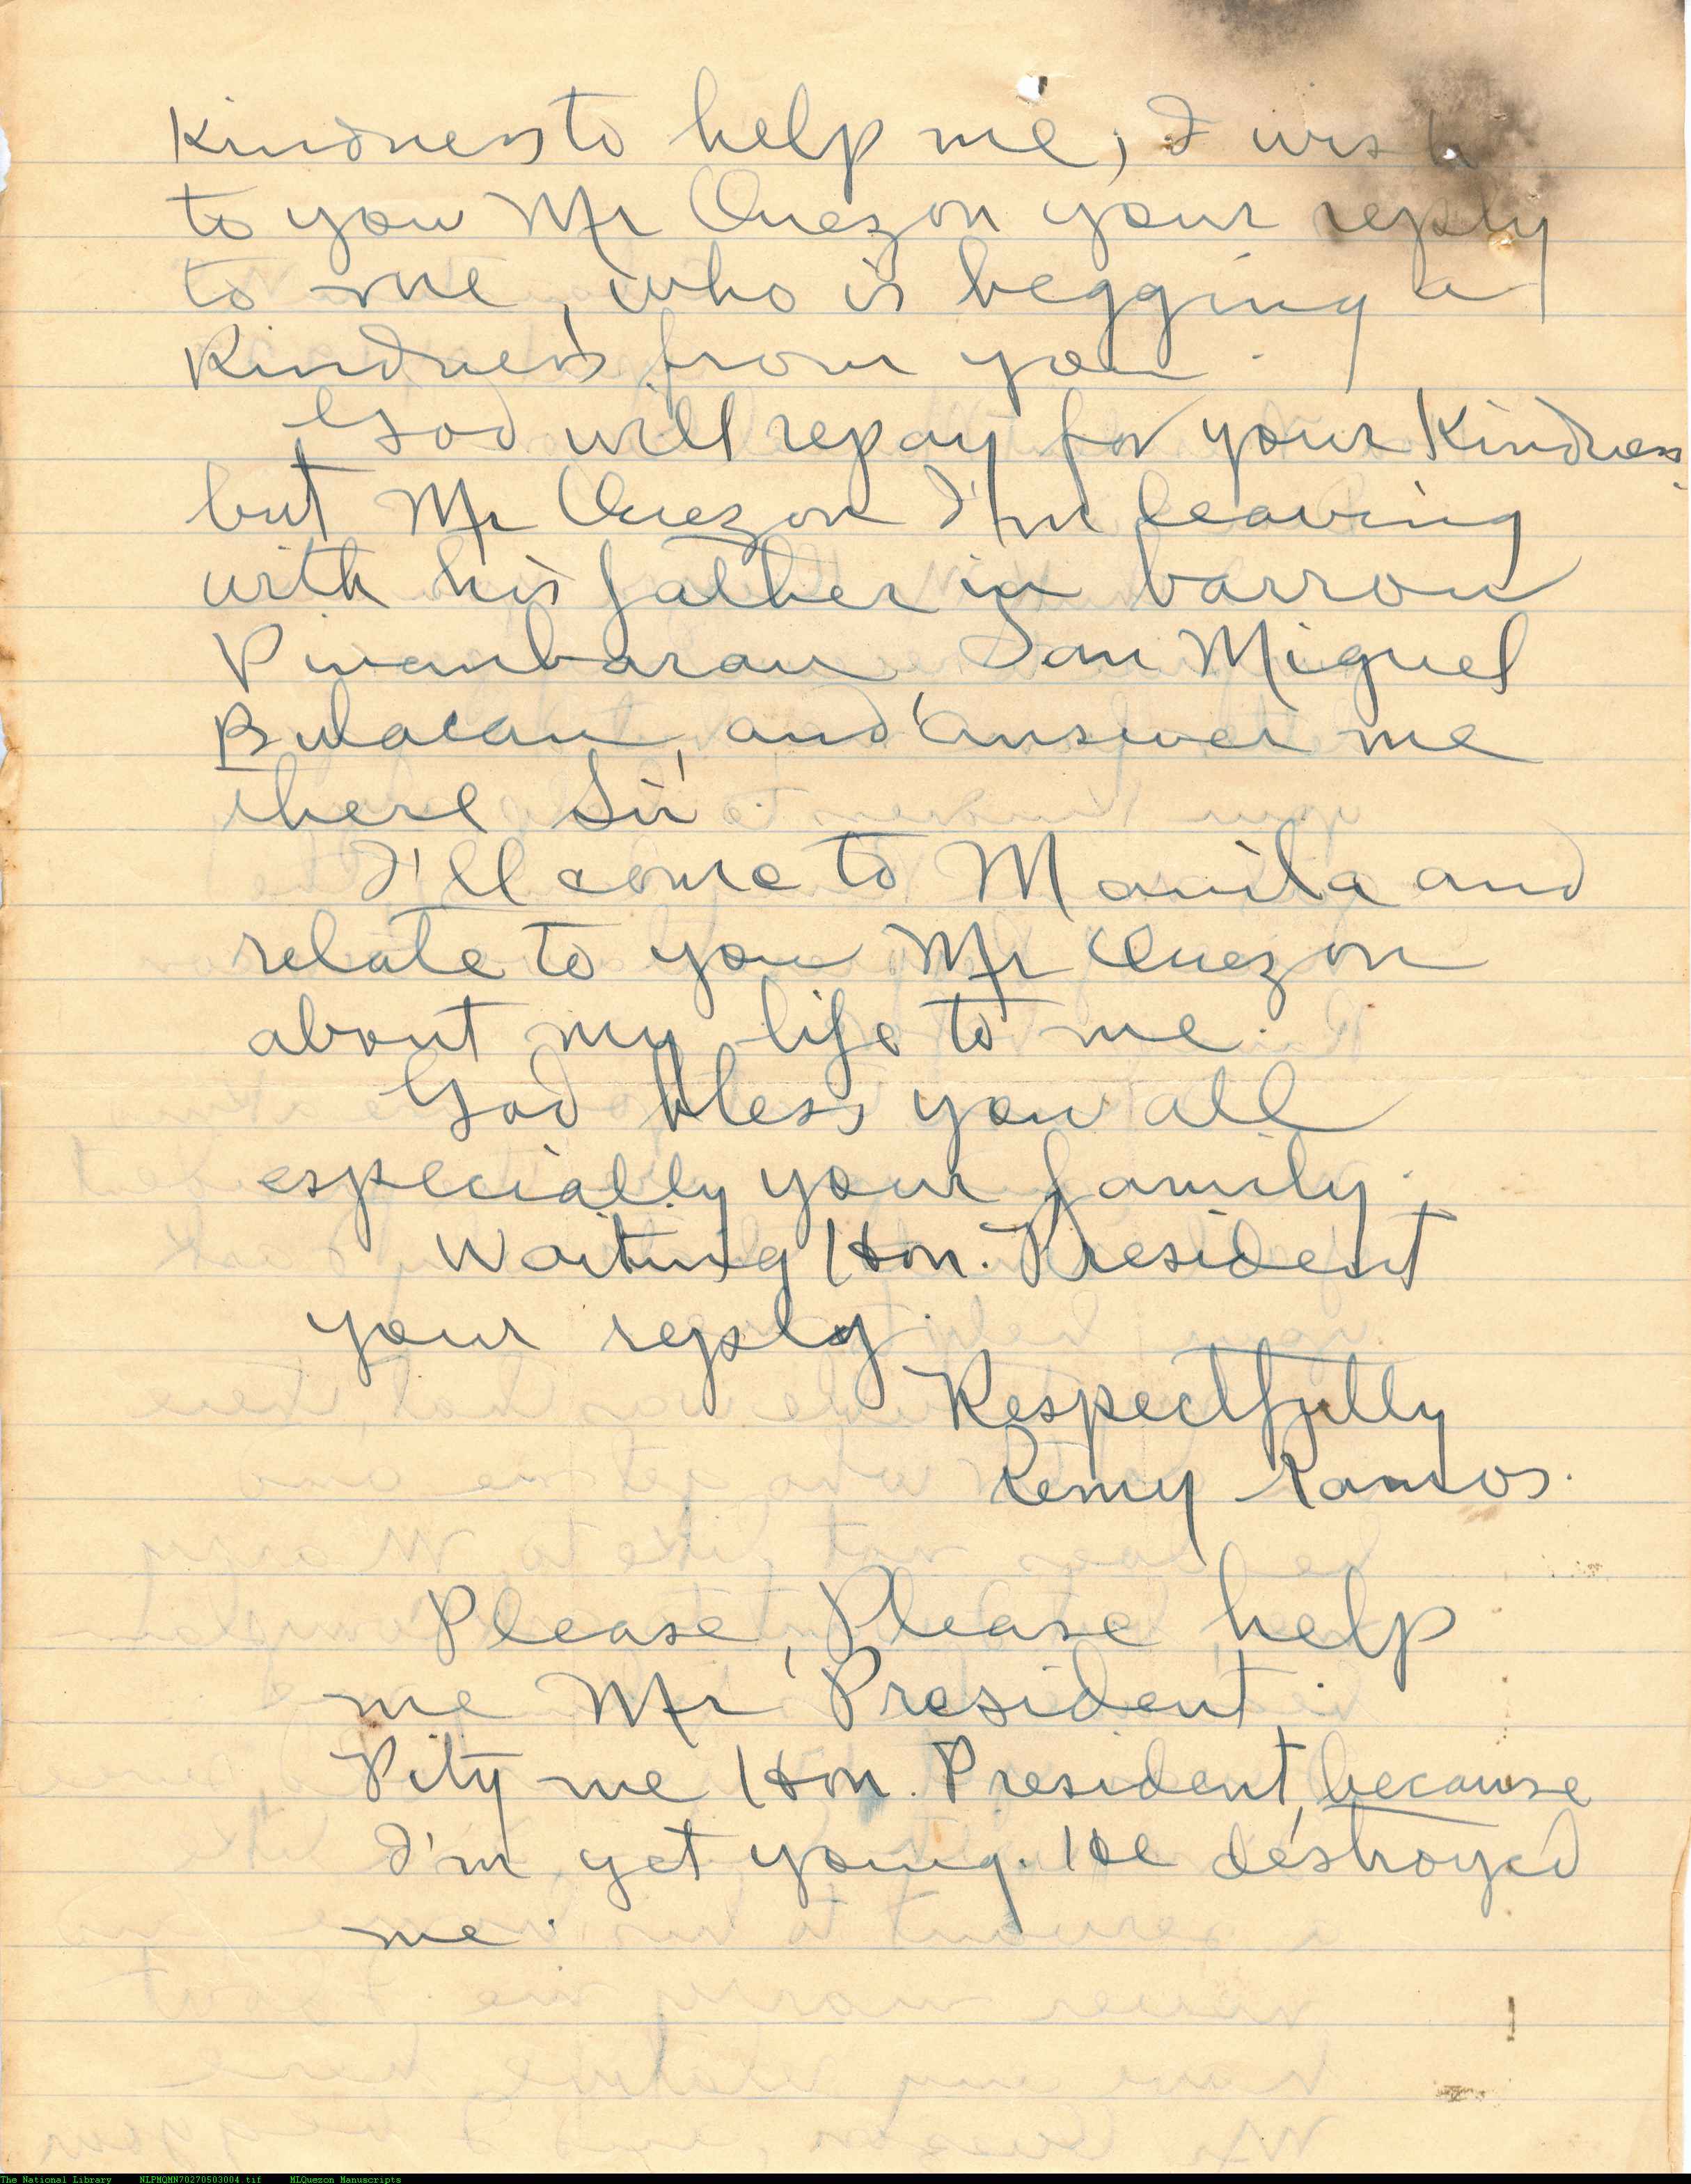 Kindness to help me, I wish
to you Mr Quezon your reply
to me, who is begging a
Kindness from you.
God will repay for your Kindness.
but Mr Quezon I'm leaving
with his father in barrow
Pinanbaran, San Miguel
Bulacan, and answer me
there Sir.
I'll come to Manila and
relate to you Mr Quezon
about my life to me.
God bless you all
especially your family.
Waiting Hon. President
your reply.
Respectfully
Remy Ramos.
Please, Please help
me Mr President.
Pity me Hon. President, because
I'm yet young. He destroyed
me.
The National Library NLPMQMN70270503004.tif MLQuezon Manuscripts